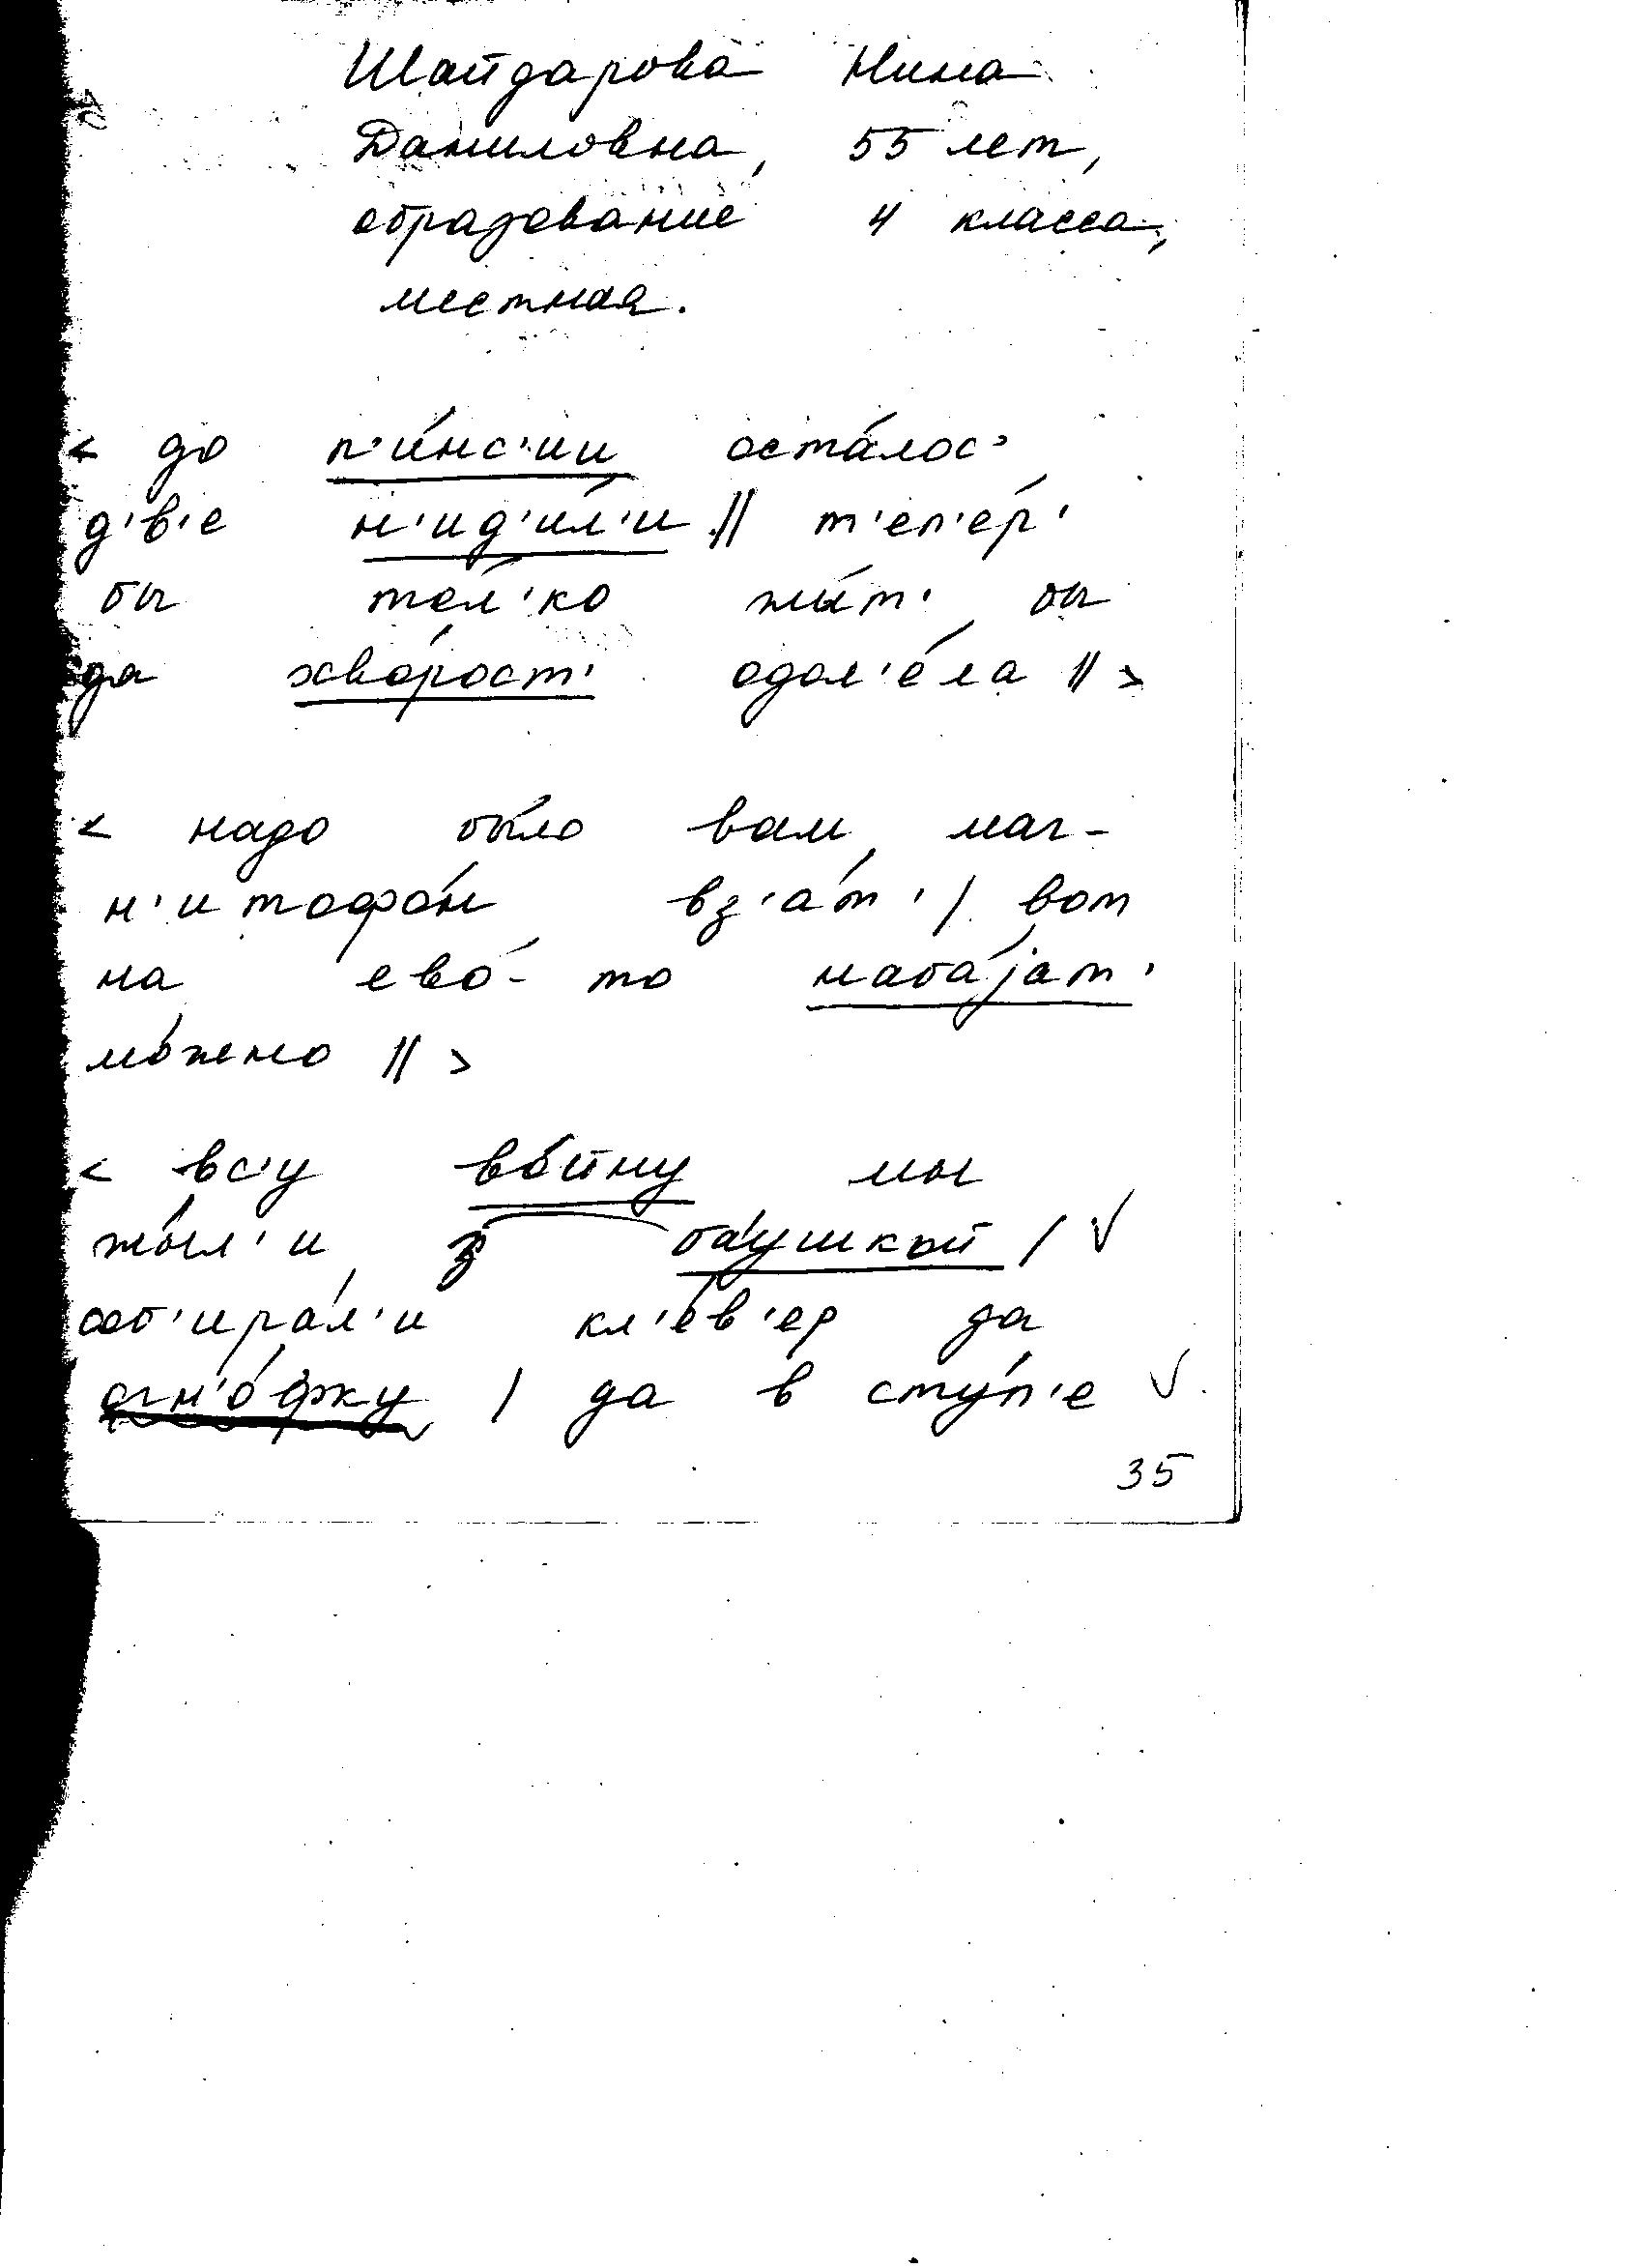 Шайдарова Нина
Даниловна, 55 лет,
образование 4 класса,
местная.
< до п'и́нс'ии оста́лос'
д'в'е н'ид'и́л'и || т'еп'е́р'
бы то́л'ко жы́т' бы
да хво́рост' одол'е́ла || >
< надо бы́ло вам маг-
н'итофо́н вз'а́т' / вот
на ево́-то наба́jат'
мо́жно || >
< вс'у во́йну мы
жы́л'и з ба́ушкой / √
соб'ира́л'и кл'е́в'ер да
огн'о́фку / да в сту́п'е √
35